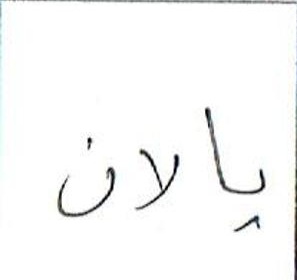 پالان